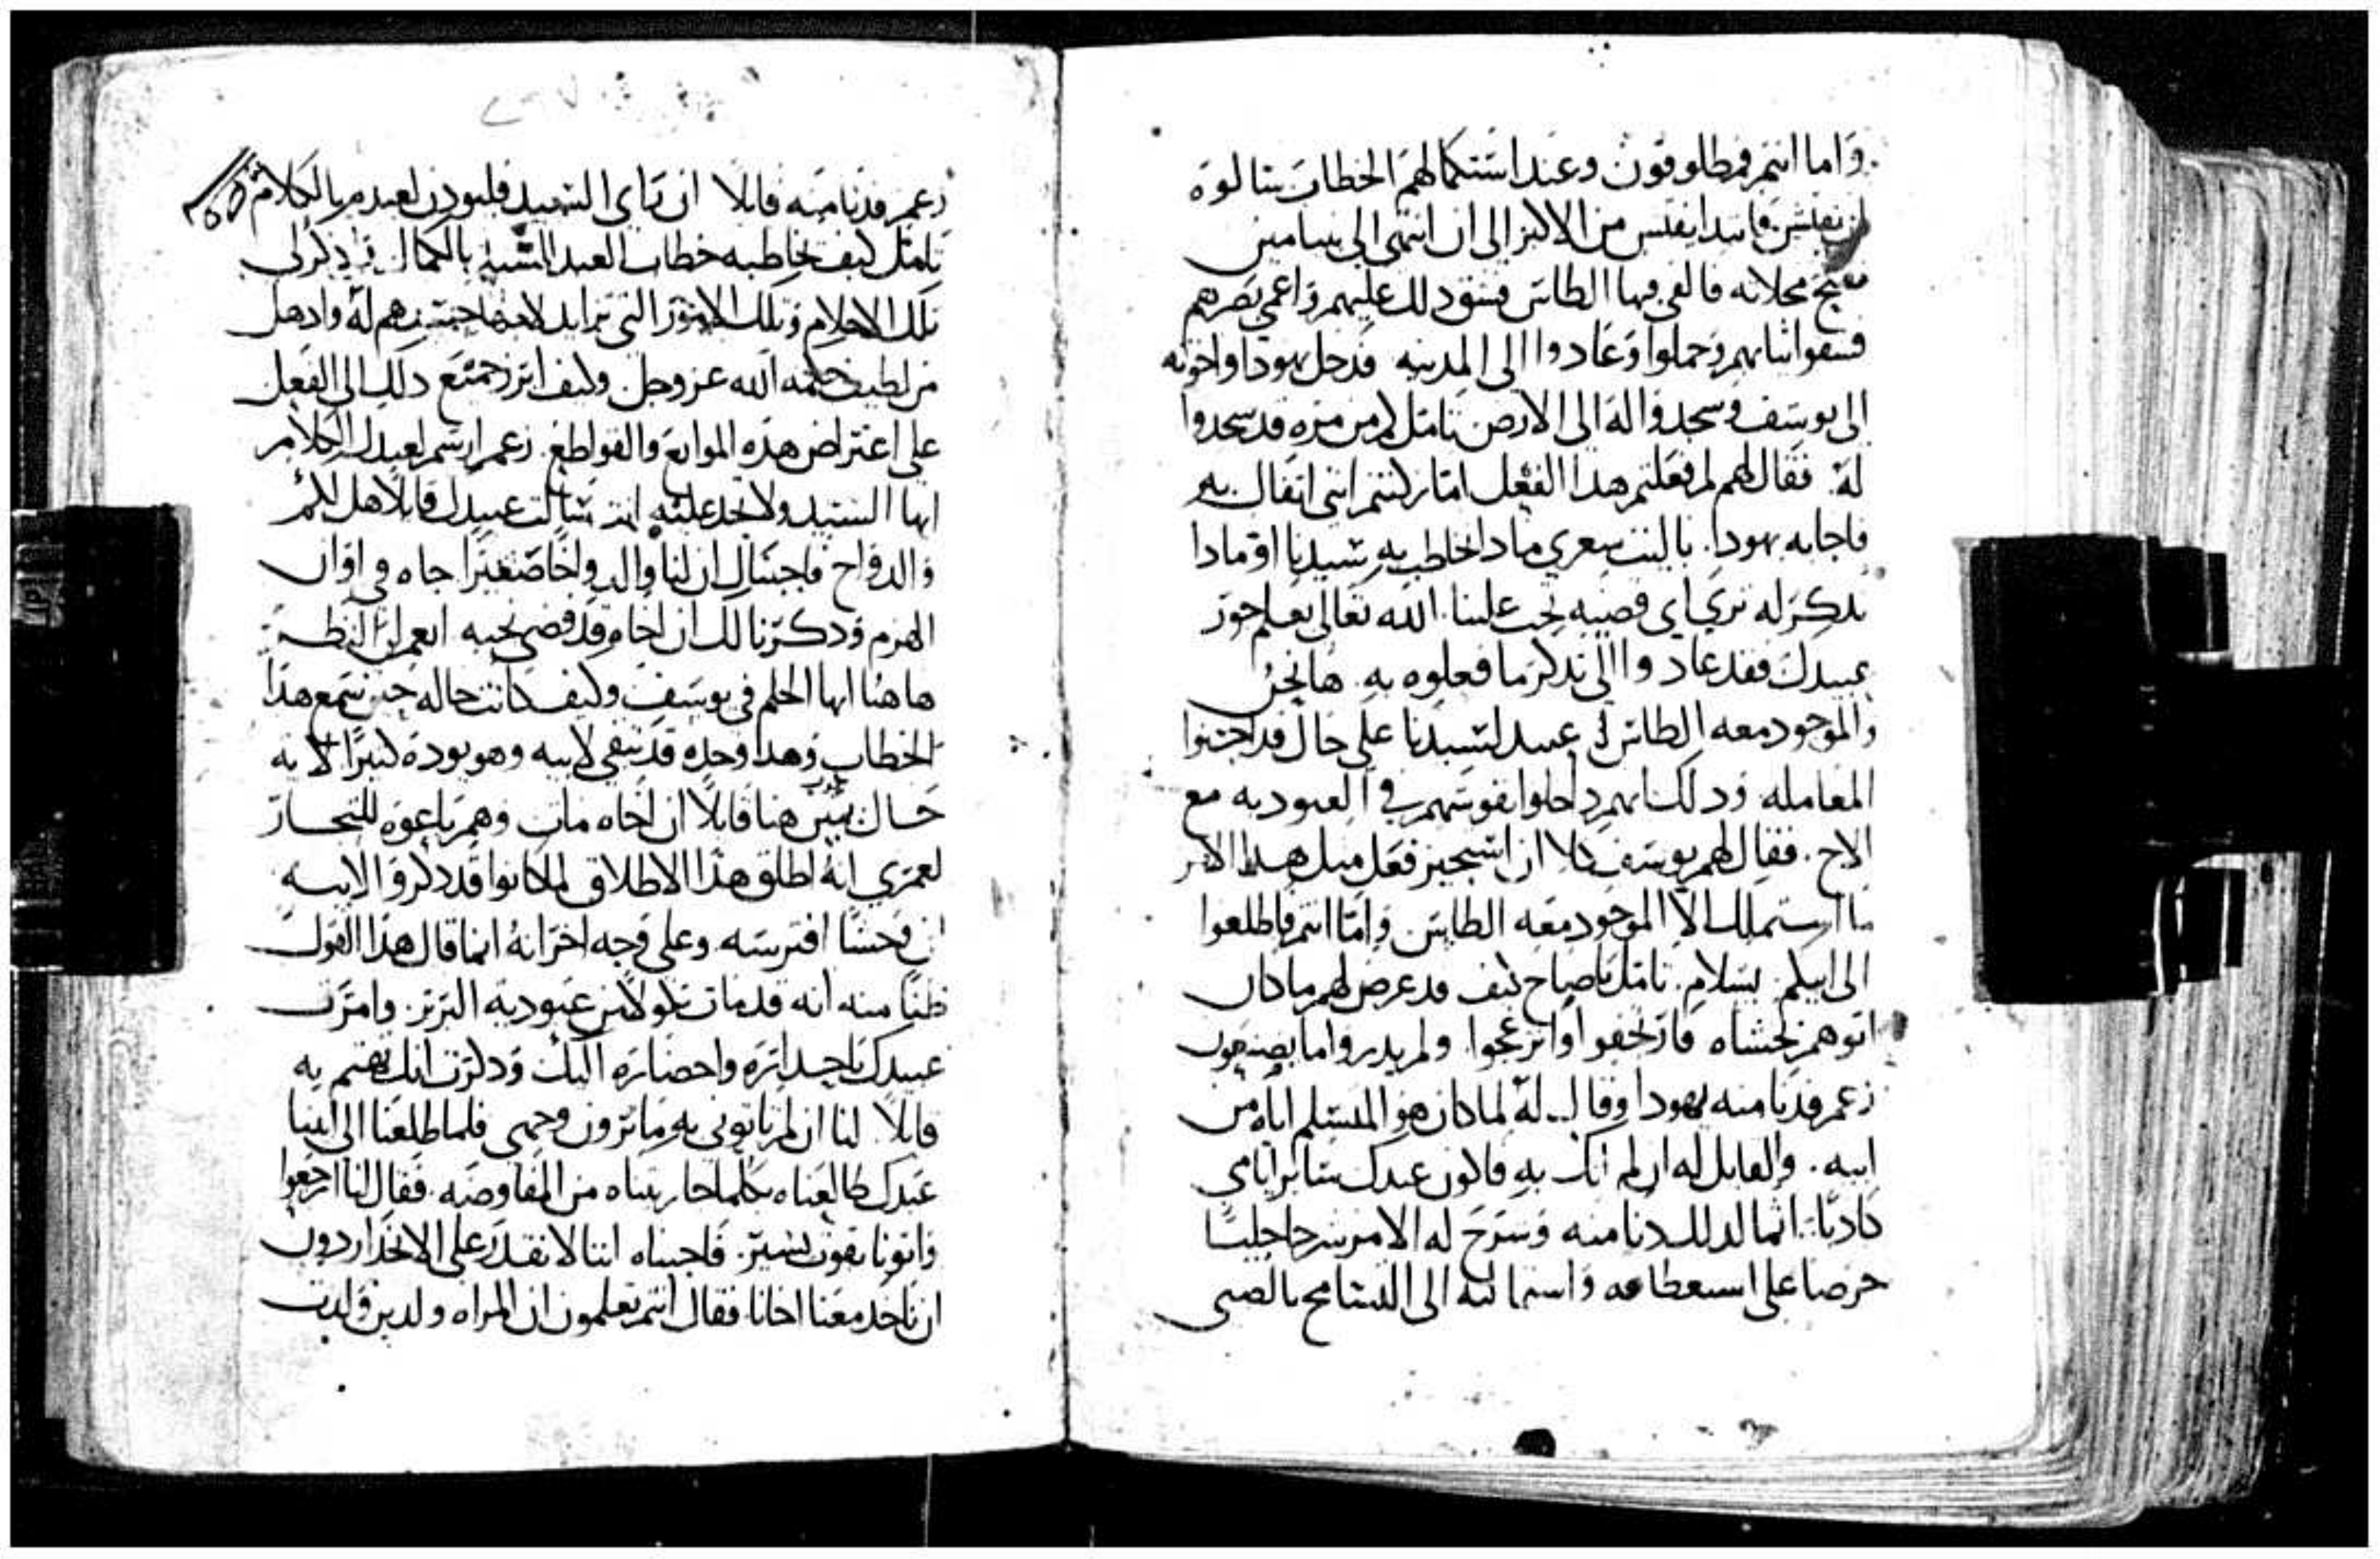 واما انتم فمطلوقون وعند استكمالهم الخطاب سالوه
ان يفتش فابتدا يفتش من الاكبر الى ان انتهى الى بنيامين
ففتح مخلاته فالفى فيها الطاس فشق ذلك عليهم واعمى بصرهم
فشقوا ثيابهم وحملوا وعادوا الى المدينه فدخل يهودا واخوته
الى يوسف وسجدوا له الى الارض تامل كم من مره قد سجدوا
له. فقال لهم لم فعلتم هذا الفعل اما تركنتم انني اتفال به
فاجابه يهودا. يا ليت شعري ماذا نخاطب به سيدنا او ماذا
نذكر له تري اي قضيه نحت علينا. الله تعالى يعلم جور
عبيدك فقد عادوا الى تذكر ما فعلوه به. ها نحن
والموجود معه الطاس عبيد لسيدنا على حال قد اجتنوا
المعامله. وذلك انهم ادخلوا نفوسهم في العبوديه مع
الاخ. فقال لهم يوسف كلا ان استجيز فعل مثل هذا الامر
ما استملك الا الموجود معه الطاس. واما انتم فاطلعوا
الى ابيكم بسلام. تامل ياصاح كيف قد عرض لهم ما كان
ابوهم يخشاه فارتجفوا وانزعجوا. ولم يدروا ما يصنعون
زعم فدنا منه يهودا وقال له لما كان هو المتسلم اياه من
ابيه. والقايل له ان لم اتك به فاكون عبدك ساير ايامي
كاذبا. انما لذلك دنا منه وشرح له الامر شرحا جليًا
حرصا على استعطافه واستمالته الى التسامح بالصبي
زعم فدنا منه قايلا ان راى السيد فليوذن لعبده بالكلام
تامل كيف يخاطبه خطاب العبد السيد بالكمال. واذكر لي
تلك الاحلام وتلك الامور التي تزايد لاجلها حسدهم له واذهل
من لطيف حكمه الله عز وجل. وكيف ابرز جميع ذلك الى الفعل
على اعتراض هذه الموانع والقواطع. زعم ارسم لعبدك الكلام
ايها السيد ولا تجد عليه انت سالت عبيدك قايلا هل لكم
والد واخ فاجبناك ان لنا والد واخًا صغيرًا جاه في اوان
الهرم وذكرنا لك ان اخاه قد قضى نحبه انعم لي النظر
هاهنا ايها الحلم في يوسف وكيف كانت حاله حين سمع هذا
الخطاب وهذا وحده قد بقي لابيه وهو يوده كثيرًا لانه
قايلاً ان اخاه مات وهم باعوه للتجار
لعمري انه اطلق هذا الاطلاق لما كانوا قد ذكروا لابيه
ان وحشًا افترسه وعلى وجه اخر انه انما قال هذا القول
ظنًا منه انه قد مات عبودية البربر. وامرت
عبيدك واحضاره اليك وذكرت انك تهتم به
قايلاً. لنا ان لم تاتوني به ما ترون وجهي فلما طلعنا الى ابينا
عبدك طالعناه بكلما جاريتناه من المفاوضه. فقال لنا ارجعوا
واتونا بقوت يسير. فاجبناه اننا لا نقدر على الانحدار دون
ان ناخد معنا اخانا فقال انتم تعلمون ان المراه ولدين ولدت